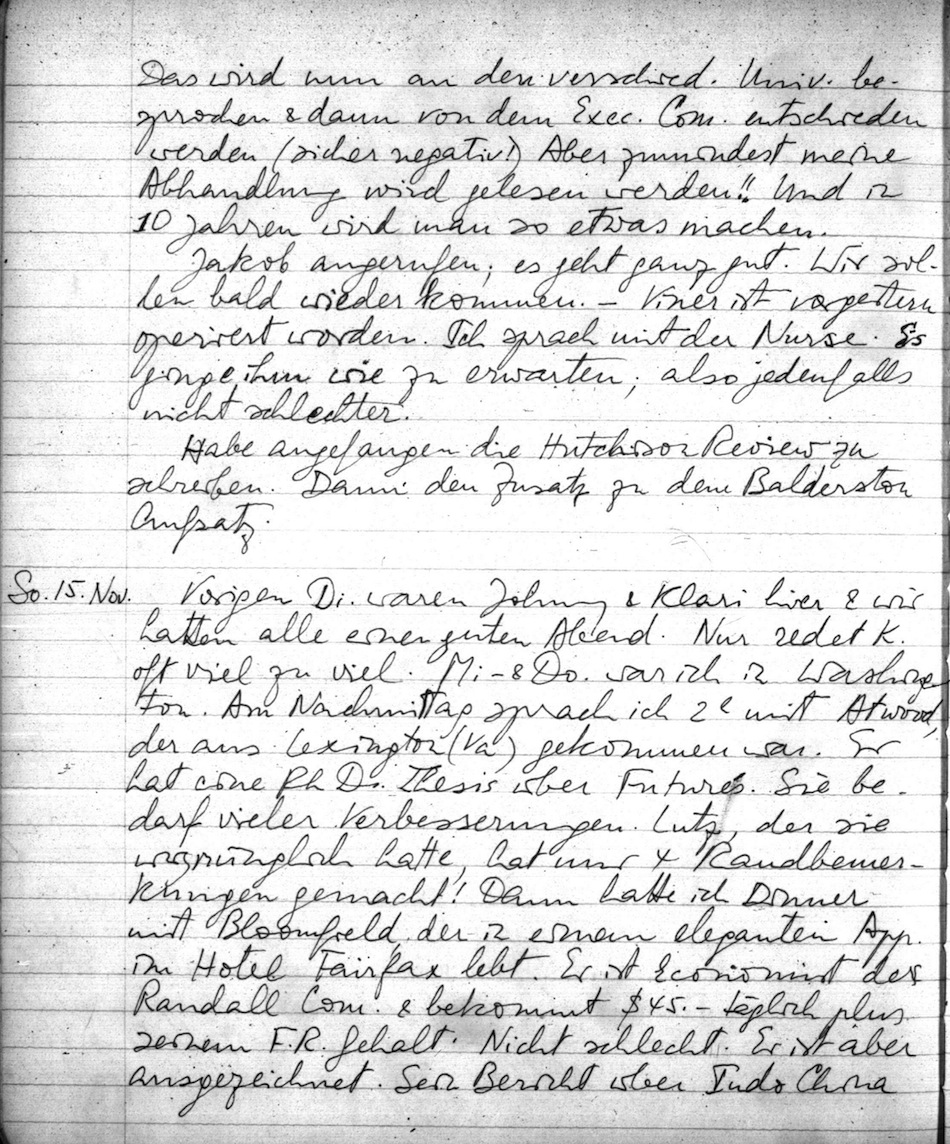 Das wird nun an den verschied. Univ. be-
sprochen & dann von dem Exec. Com. entschieden
werden (sicher negativ!) Aber zumindest meine
Abhandlung wird gelesen werden!! Und in
10 Jahren wird man so etwas machen.
Jakob angerufen; es geht ganz gut. Wir sol-
len bald wieder kommen. – Viner ist vorgestern
operiert worden. Ich sprach mit der Nurse. Es
ginge ihm wie zu erwarten; also jedenfalls
nicht schlechter.
Habe angefangen die Hutchison Review zu
schreiben. Dann den Zusatz zu dem Balderston
Aufsatz.
So. 15. Nov. Vorigen Di. waren Johnny & Klari hier & wir
hatten alle einen guten Abend. Nur redet K.
oft viel zu viel. Mi- & Do. war ich in Washing-
ton. Am Nachmittag sprach ich 2h mit Atwood,
der aus Lexington (Va) gekommen war. Er
hat eine Ph D. Thesis über Futures. Sie be-
darf vieler Verbesserungen. Lutz, der sie
ursprünglich hatte, hat nur 4 Randbemer-
kungen gemacht! Dann hatte ich Dinner
mit Bloomfield, der in einem eleganten App.
im Hotel Fairfax lebt. Er ist Economist der
Randall Com. & bekommt $45.- täglich plus
seinem F.R. Gehalt. Nicht schlecht. Er ist aber
ausgezeichnet. Sein Bericht über Indo China